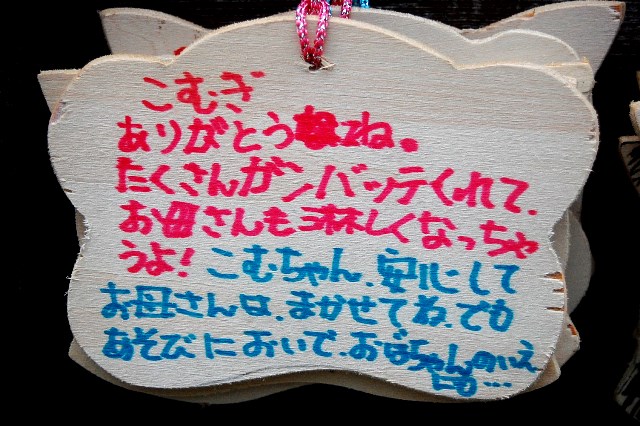 こむぎ
ありがとうね。
たくさんガンバッテくれて、
お母さんも淋しくなっちゃ
うよ! こむちゃん、安心して
お母さんは、まかせてね、でも
あそびにおいで、おばちゃんのいえ
にも…